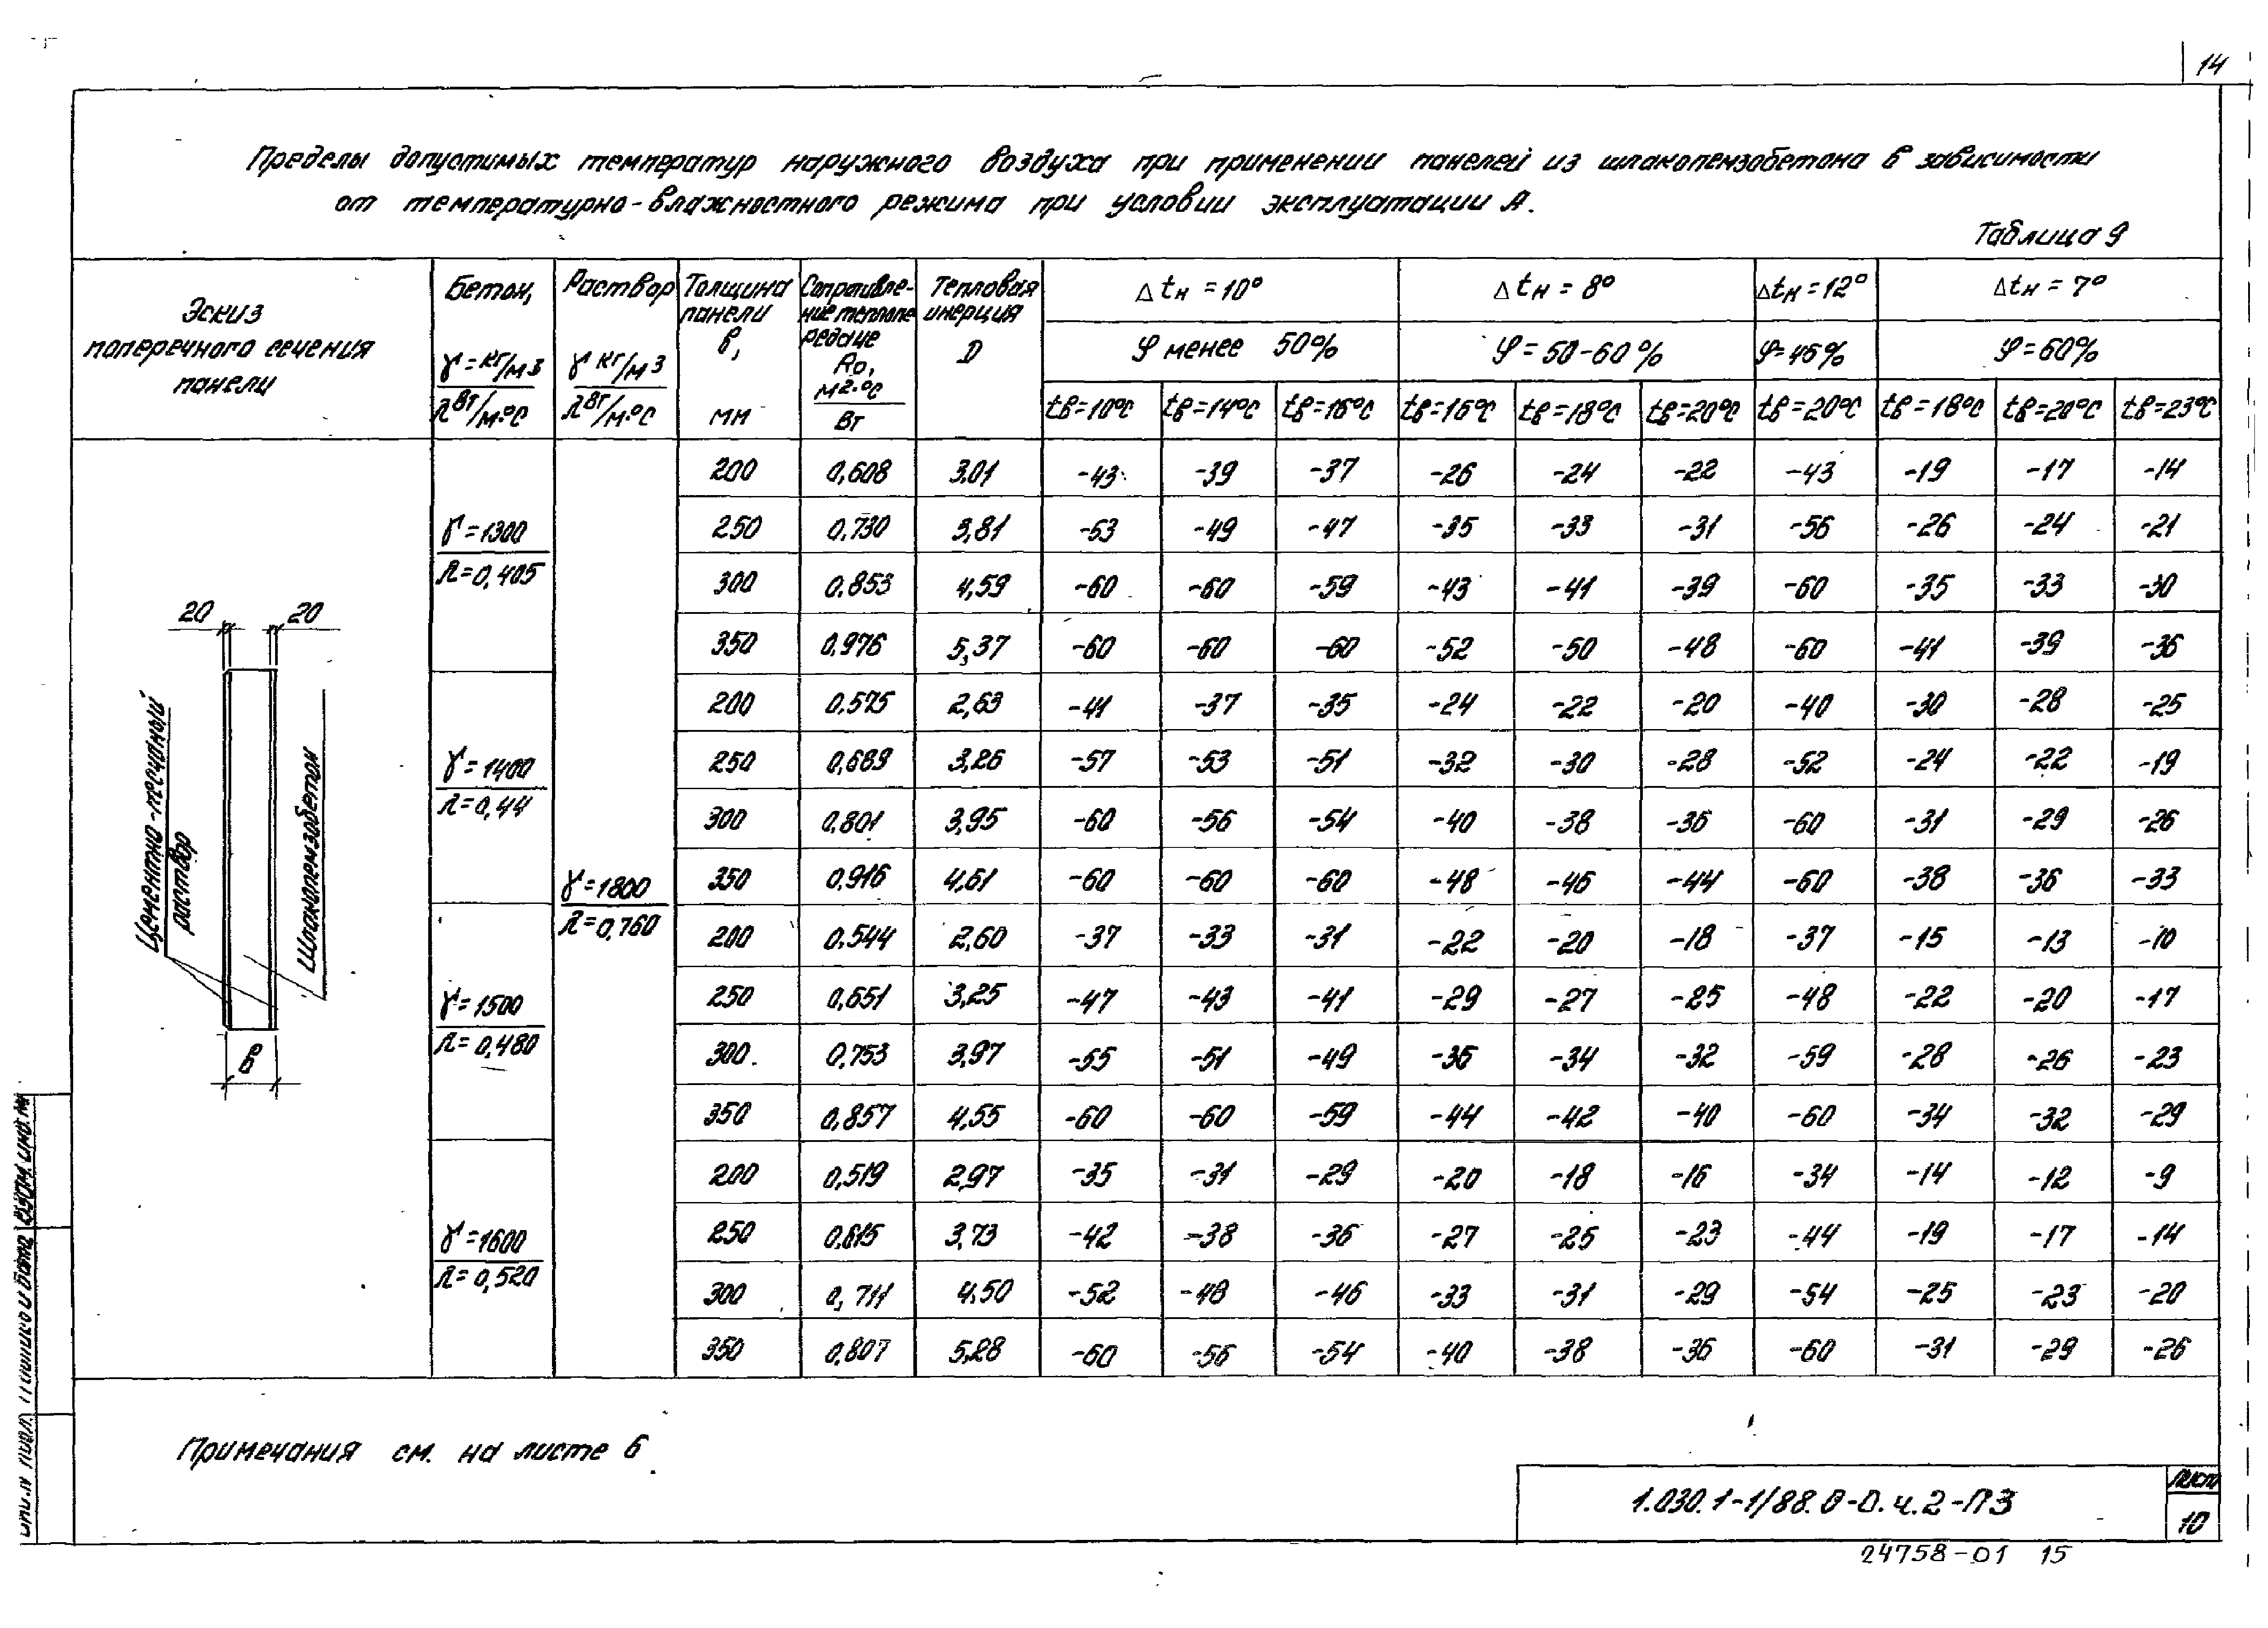 14
Пределы допустимых температур наружного воздуха при применении панелей из шлакопемзобетона в зависимости
от температурно-влажностного режима при условии эксплуатации А.
Таблица 9
Эскиз поперечного сечения панели
Бетон, γ=кг/м3 λ Вт/м·°С
Раствор γ кг/м3 λ Вт/м·°С
Толщина панели в, мм
Сопротивление теплопередаче Rо, м2·°С Вт
Тепловая инерция D
Δtн = 10° Δtн = 8° Δtн = 12° Δtн = 7°
φ менее 50% φ = 50-60% φ=45% φ=60%
tв=10°С tв=14°С tв=16°С tв=16°С tв=18°С tв=20°С tв=20°С tв=18°С tв=20°С tв=23°С
20 20
Цементно-песчаный раствор
Шлакопемзобетон
в
γ=1800
λ=0,760
γ=1300
λ=0,405
200 0,608 3,01 -43 -39 -37 -26 -24 -22 -43 -19 -17 -14
250 0,730 3,81 -53 -49 -47 -35 -33 -31 -56 -26 -24 -21
300 0,853 4,59 -60 -60 -59 -43 -41 -39 -60 -35 -33 -30
350 0,976 5,37 -60 -60 -60 -52 -50 -48 -60 -41 -39 -36
γ=1400
λ=0,44
200 0,575 2,63 -41 -37 -35 -24 -22 -20 -40 -30 -28 -25
250 0,689 3,26 -57 -53 -51 -32 -30 -28 -52 -24 -22 -19
300 0,801 3,95 -60 -56 -54 -40 -38 -36 -60 -31 -29 -26
350 0,916 4,61 -60 -60 -60 -48 -46 -44 -60 -38 -36 -33
γ=1500
λ=0,480
200 0,544 2,60 -37 -33 -31 -22 -20 -18 -37 -15 -13 -10
250 0,651 3,25 -47 -43 -41 -29 -27 -25 -48 -22 -20 -17
300 0,753 3,97 -55 -51 -49 -36 -34 -32 -59 -28 -26 -23
350 0,857 4,55 -60 -60 -59 -44 -42 -40 -60 -34 -32 -29
γ=1600
λ=0,520
200 0,519 2,97 -35 -31 -29 -20 -18 -16 -34 -14 -12 -9
250 0,615 3,73 -42 -38 -36 -27 -25 -23 -44 -19 -17 -14
300 0,711 4,50 -52 -48 -46 -33 -31 -29 -54 -25 -23 -20
350 0,807 5,28 -60 -56 -54 -40 -38 -36 -60 -31 -29 -26
Примечания см. на листе 6
1.030.1-1/88.0-0.ч.2-ПЗ
Лист
10
24758-01 15